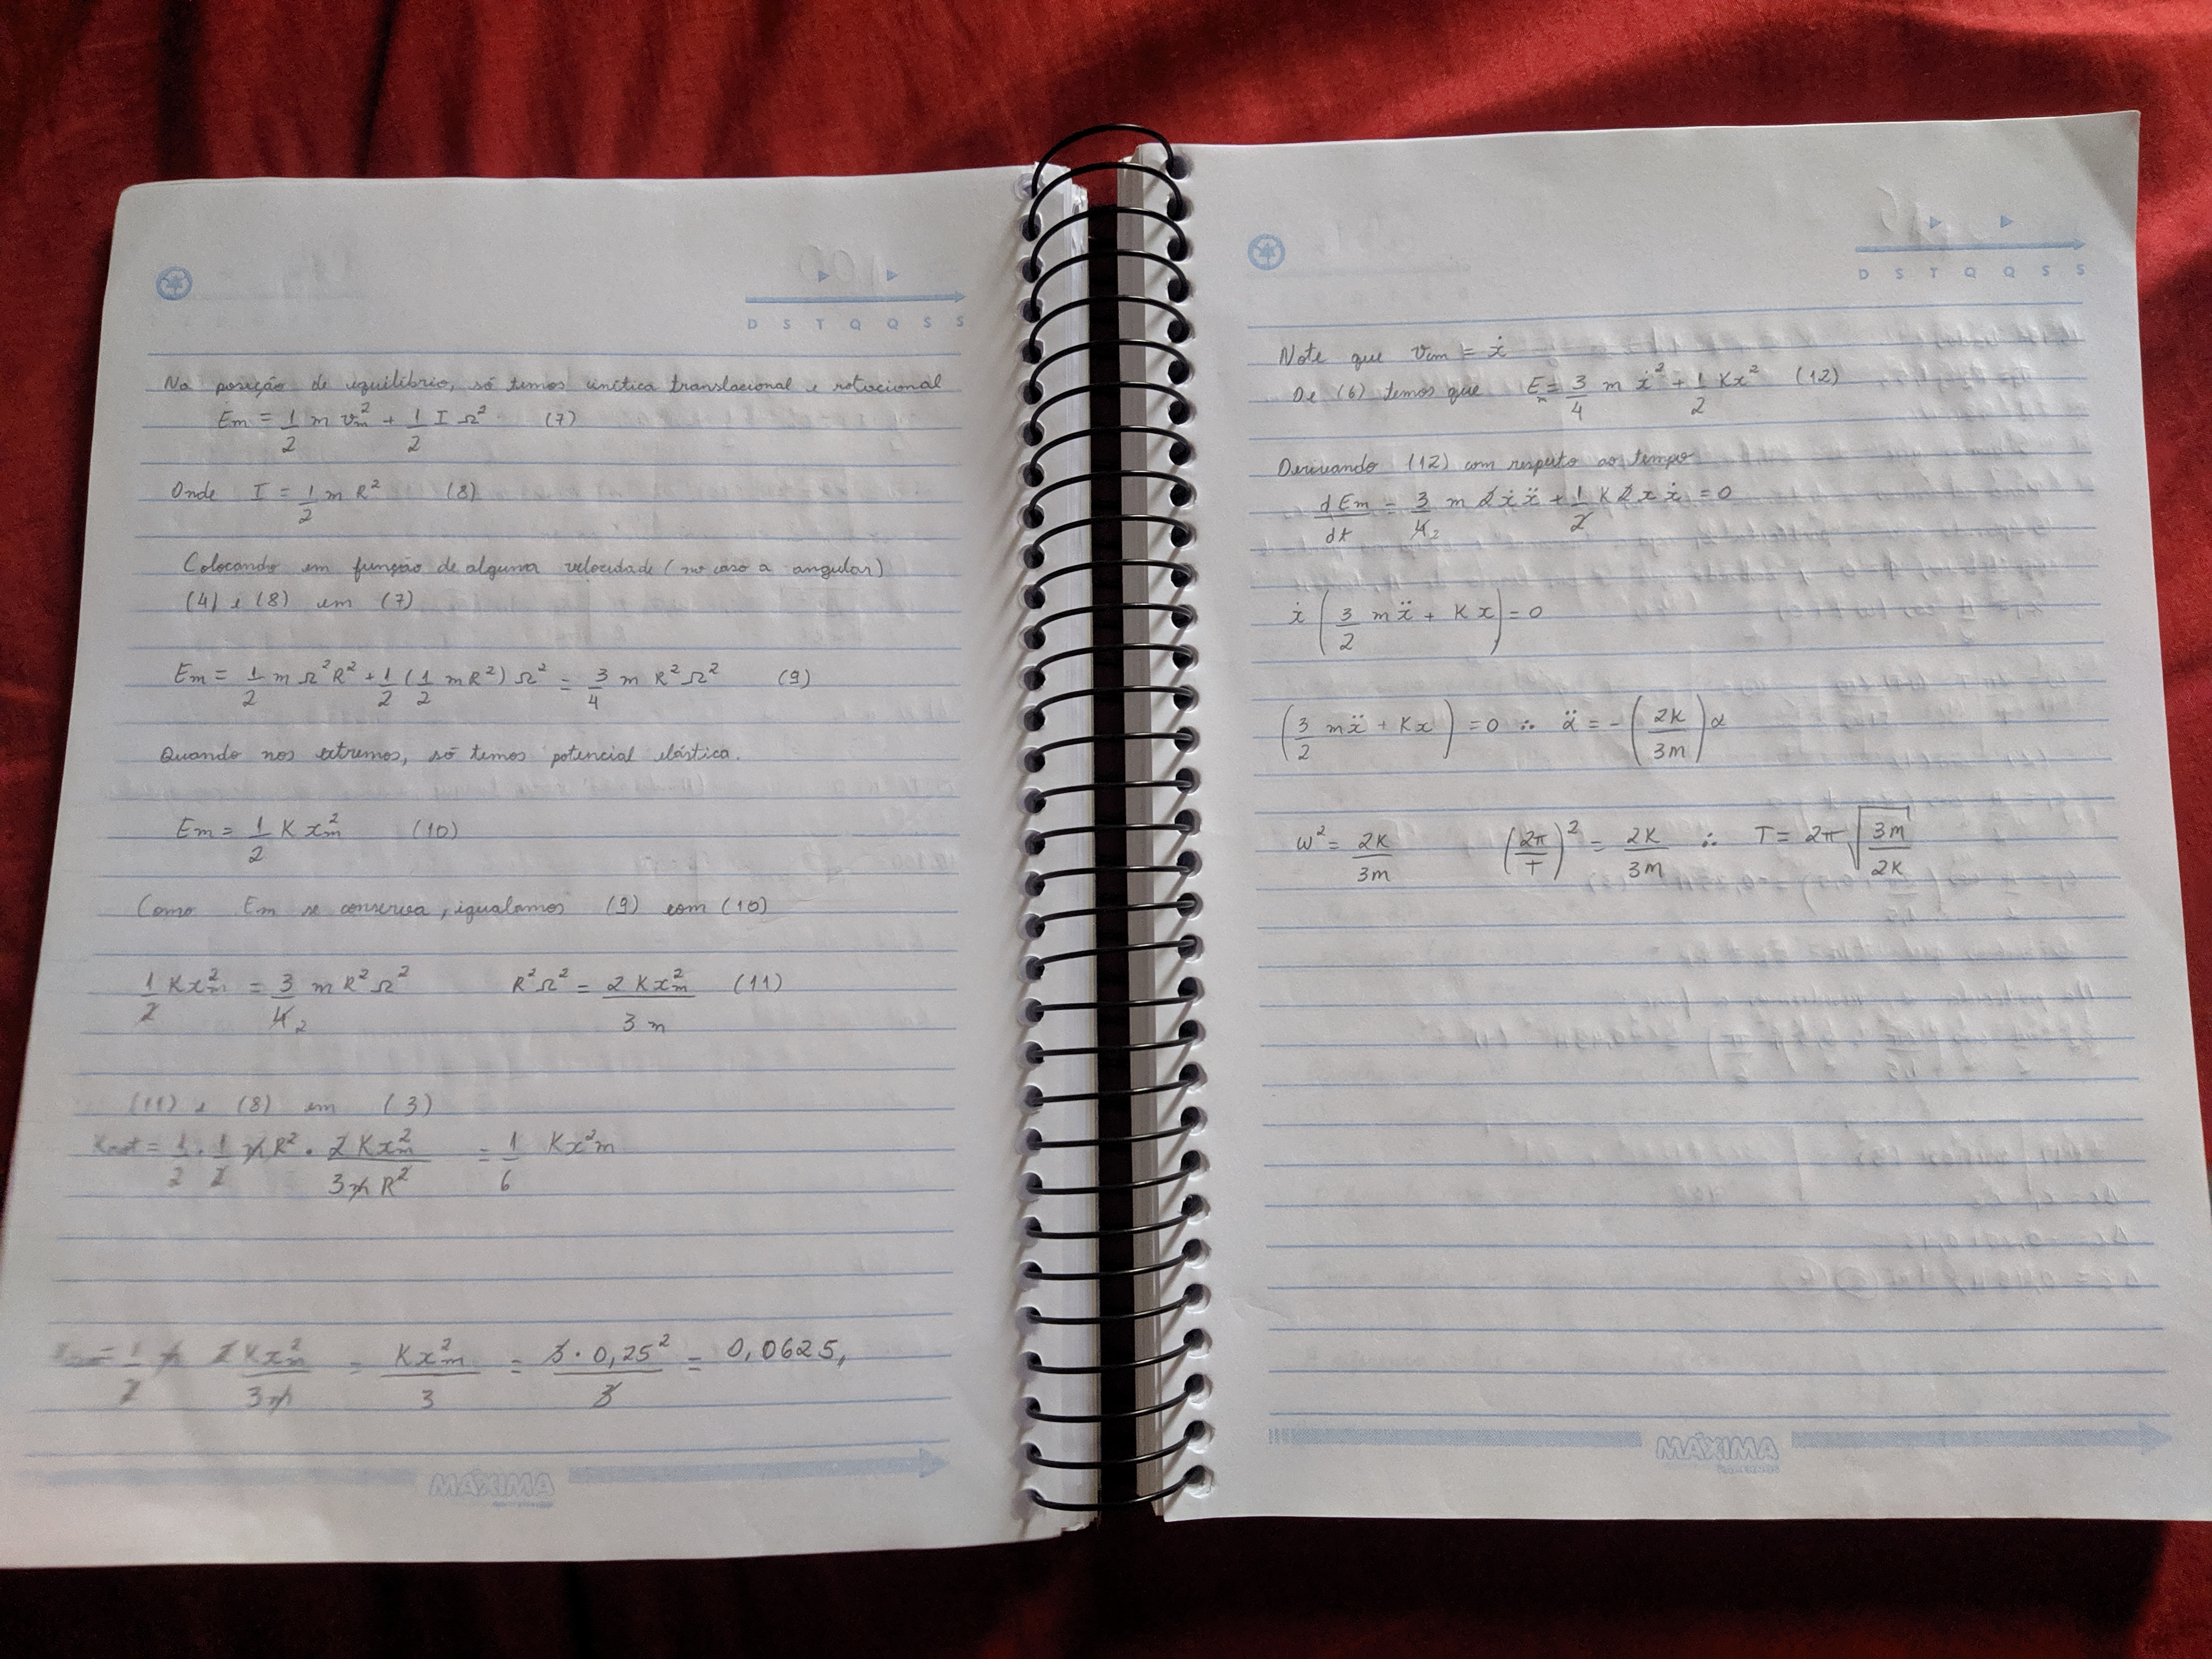 D S T Q Q S S
Na posição de equilíbrio, só temos cinética translacional e rotacional
Em = 1/2 m vcm² + 1/2 I Ω² (7)
Onde I = 1/2 m R² (8)
Colocando em função de alguma velocidade (no caso a angular)
(4) e (8) em (7)
Em = 1/2 m Ω² R² + 1/2 (1/2 m R²) Ω² = 3/4 m R² Ω² (9)
Quando nos extremos, só temos potencial elástica.
Em = 1/2 K xm² (10)
Como Em se conserva, igualamos (9) com (10)
1/2 K xm² = 3/4 2 m R² Ω² R² Ω² = 2 K xm²/3 m (11)
(11) e (8) em (3)
Krot = 1/2 · 1/2 m R² · 2 K xm²/3 m R² = 1/6 K x²m
= 1/2 m 2 K xm²/3 m = K xm²/3 = 3 · 0,25²/3 = 0,0625,
MÁXIMA
D S T Q Q S S
Note que vcm = ẋ
De (6) temos que E = 3/4 m ẋ² + 1/2 K x² (12)
Derivando (12) com respeito ao tempo
dEm/dt = 3/4 2 m 2 ẋ ẍ + 1/2 K 2 x ẋ = 0
ẋ (3/2 m ẍ + K x) = 0
(3/2 m ẍ + K x) = 0 ∴ ẍ = -(2K/3m) x
ω² = 2K/3m (2π/T)² = 2K/3m ∴ T = 2π √(3m/2K)
MÁXIMA